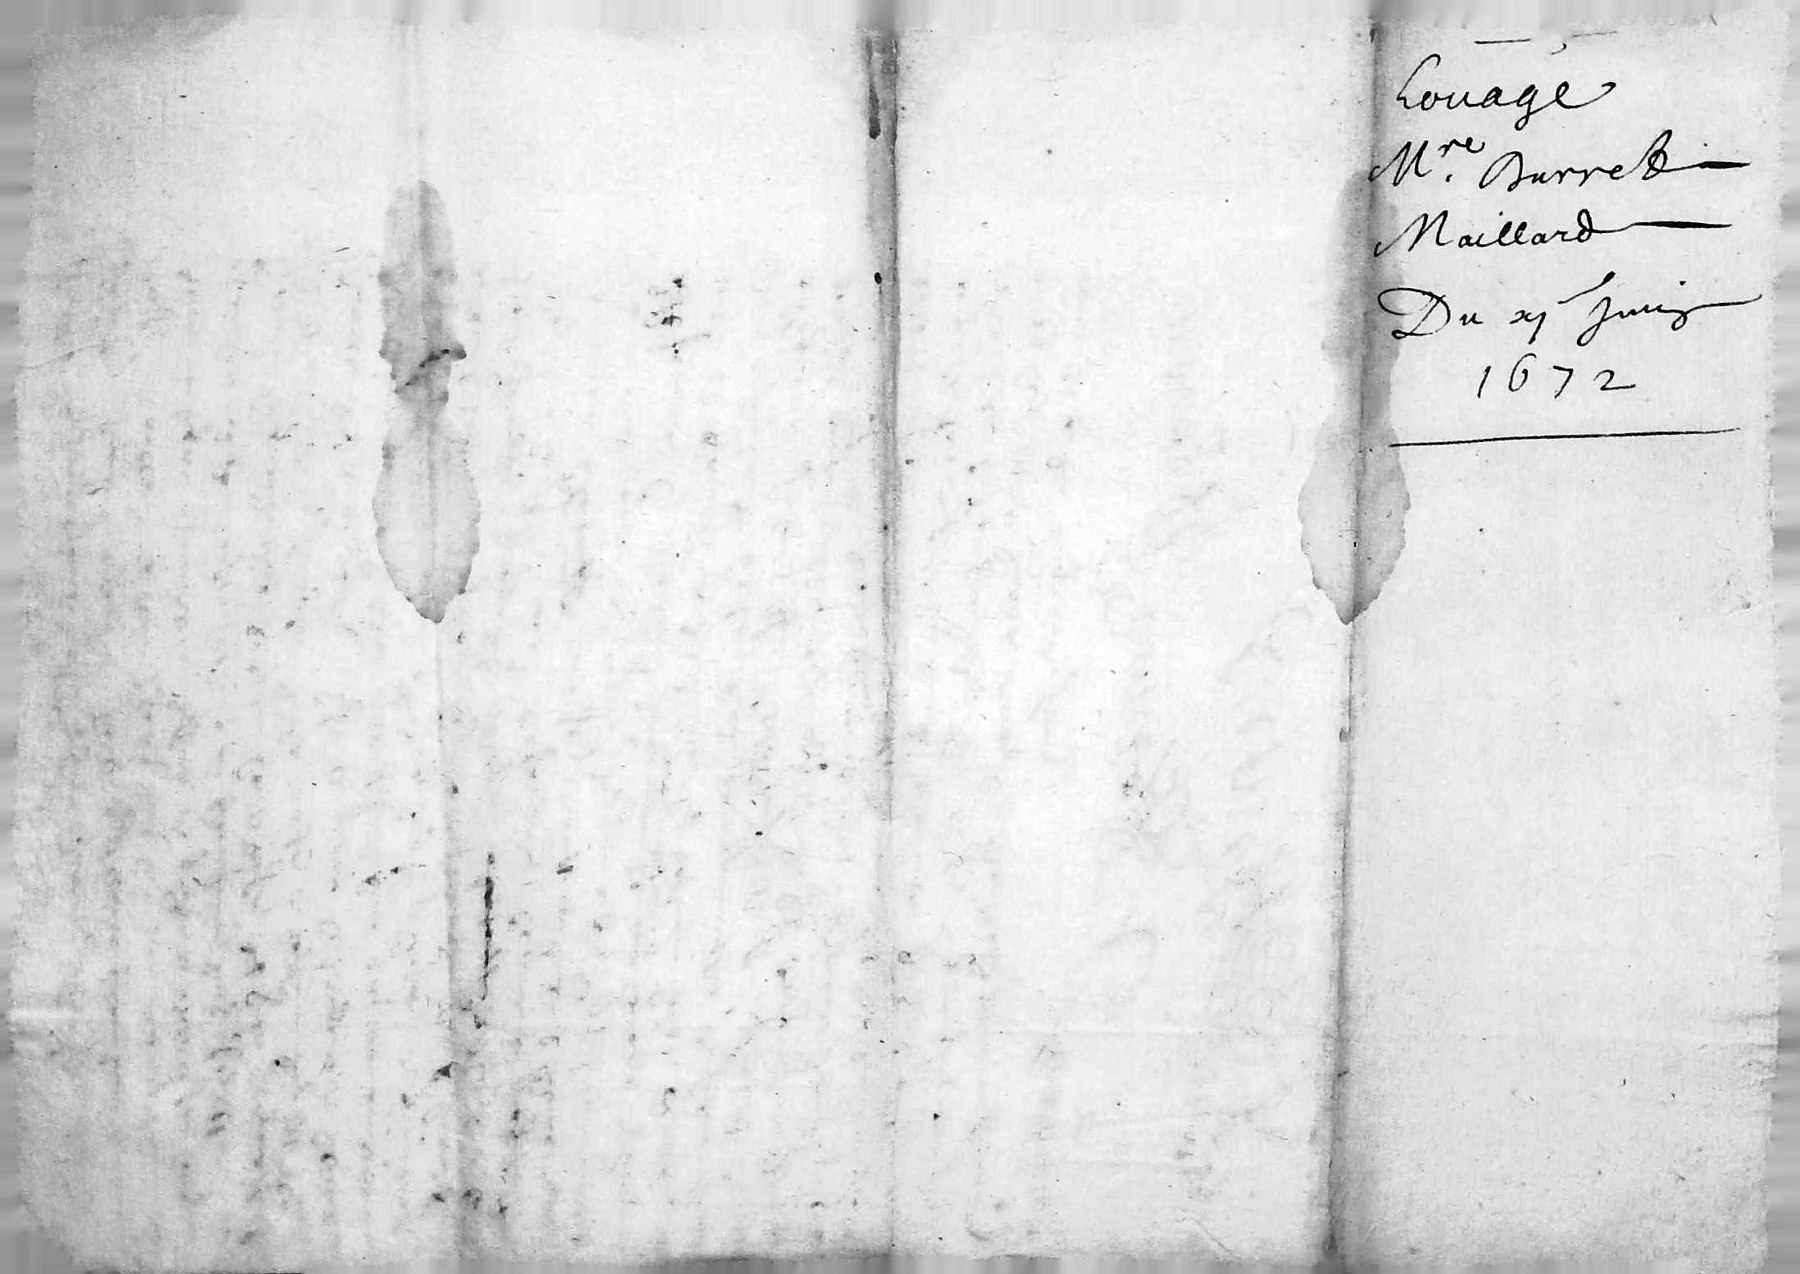 Louage
Mre. Burret
Maillard
Du xj Juin
1672